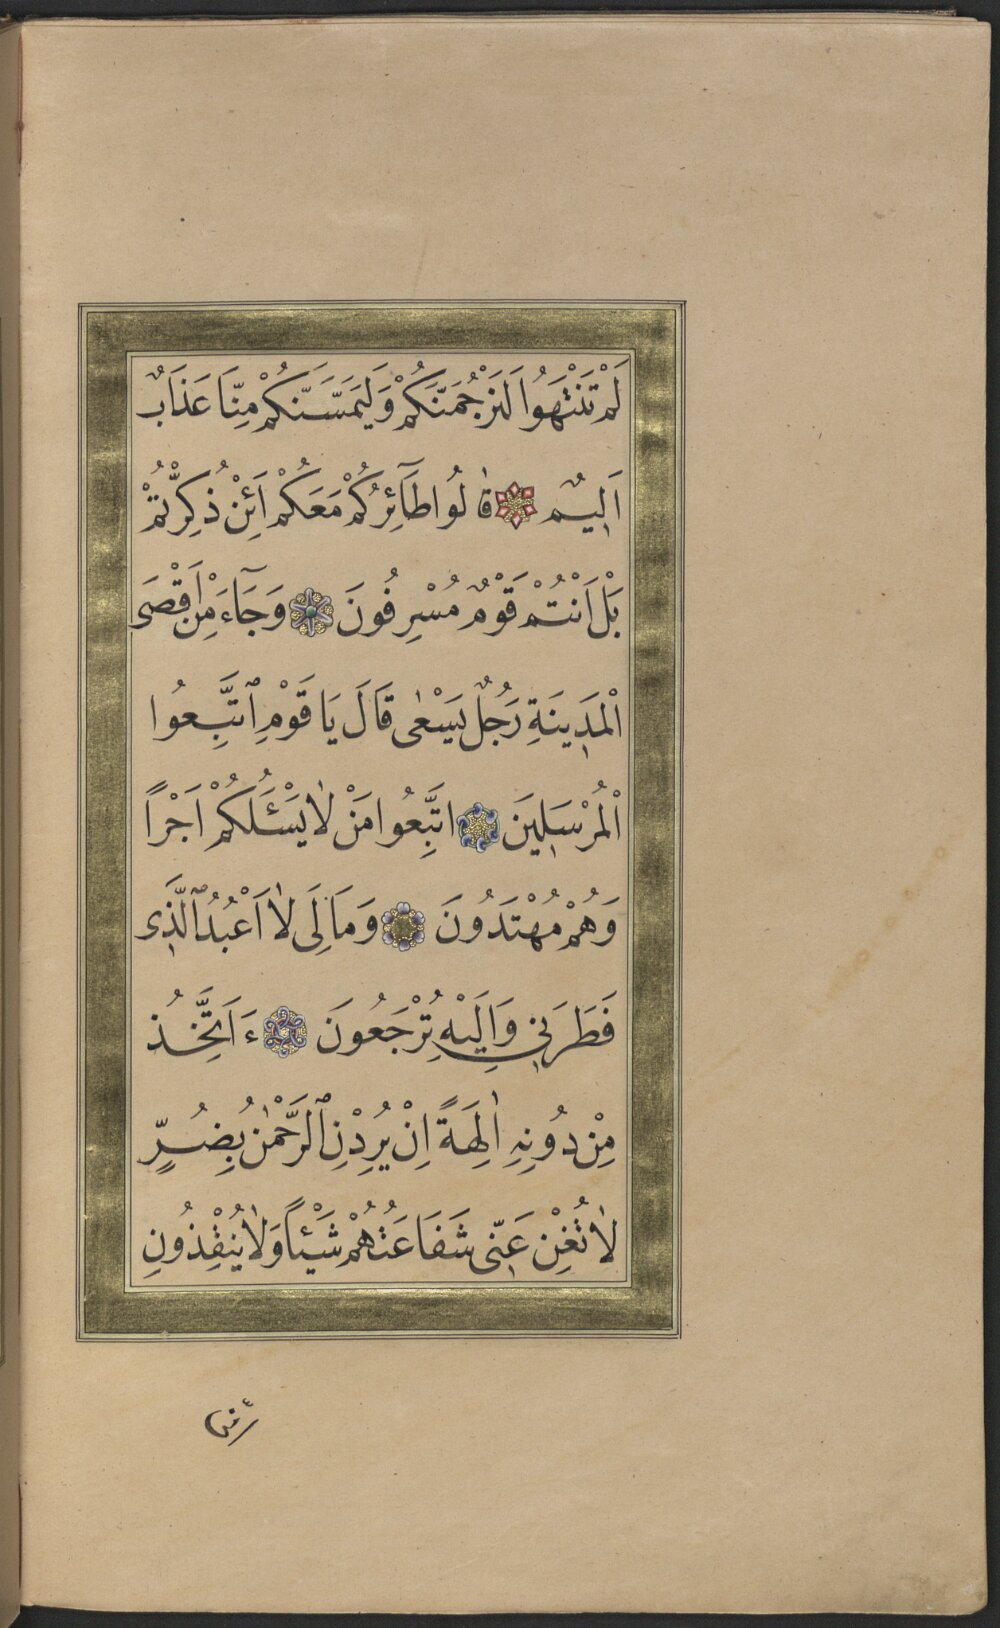 لَمْ تَنْتَهُوا لَنَرْجُمَنَّكُمْ وَلَيَمَسَّنَّكُمْ مِنَّا عَذَابٌ
اَلِيمٌ قَالُوا طَآئِرُكُمْ مَعَكُمْ اَئِنْ ذُكِّرْتُمْ
بَلْ اَنْتُمْ قَوْمٌ مُسْرِفُونَ وَجَآءَ مِنْ اَقْصَى
الْمَدِينَةِ رَجُلٌ يَسْعٰى قَالَ يَا قَوْمِ ٱتَّبِعُوا
الْمُرْسَلِينَ اتَّبِعُوا مَنْ لَا يَسْـَٔلُكُمْ اَجْرًا
وَهُمْ مُهْتَدُونَ وَمَا لِىَ لَا اَعْبُدُ ٱلَّذِى
فَطَرَنِي وَاِلَيْهِ تُرْجَعُونَ ءَاَتَّخِذُ
مِنْ دُونِهِ اٰلِهَةً اِنْ يُرِدْنِ ٱلرَّحْمٰنُ بِضُرٍّ
لَا تُغْنِ عَنِّى شَفَاعَتُهُمْ شَيْئًا وَلَا يُنْقِذُونِ